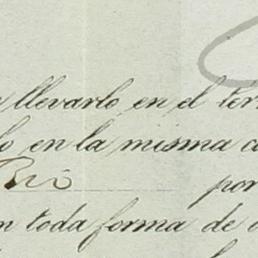 llevarlo en el ter
lo en la misma c
Rió
por
n toda forma de